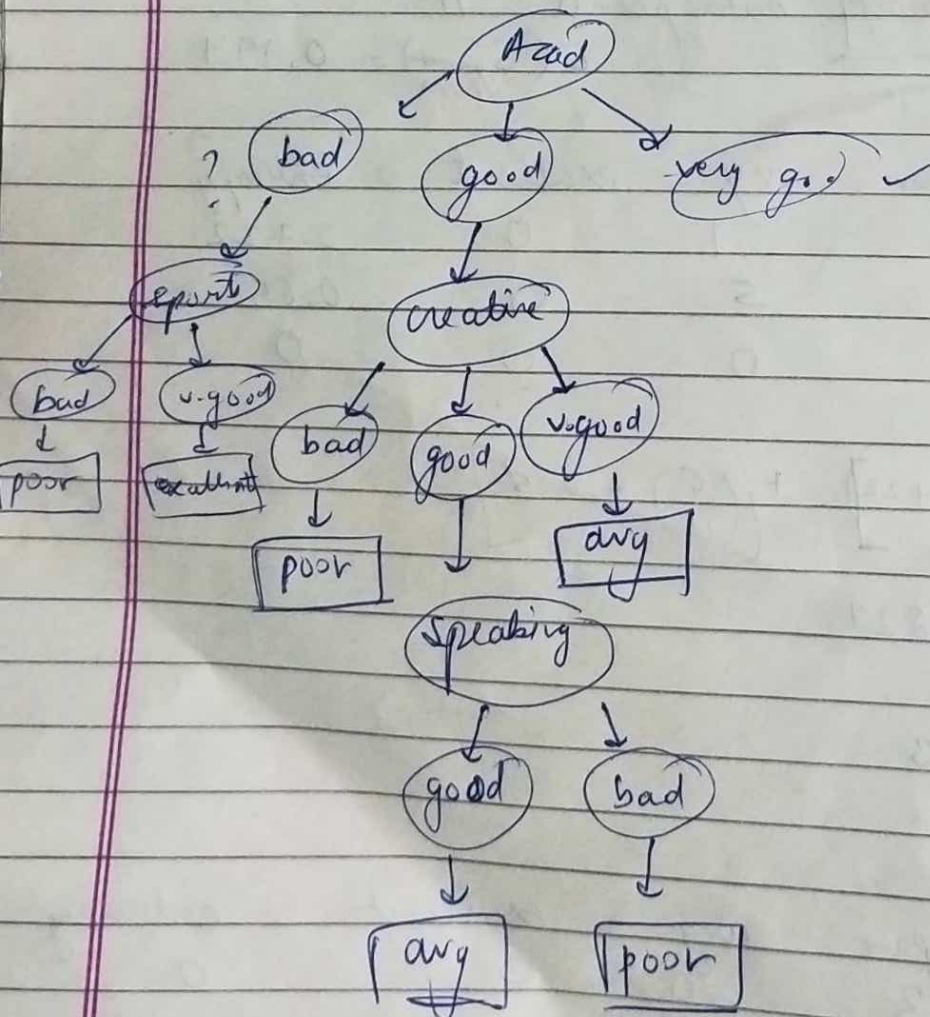 Acad
? bad good very good ✓
sports creative
bad v.good bad good v.good
poor excellent poor avg
Speaking
good bad
avg poor